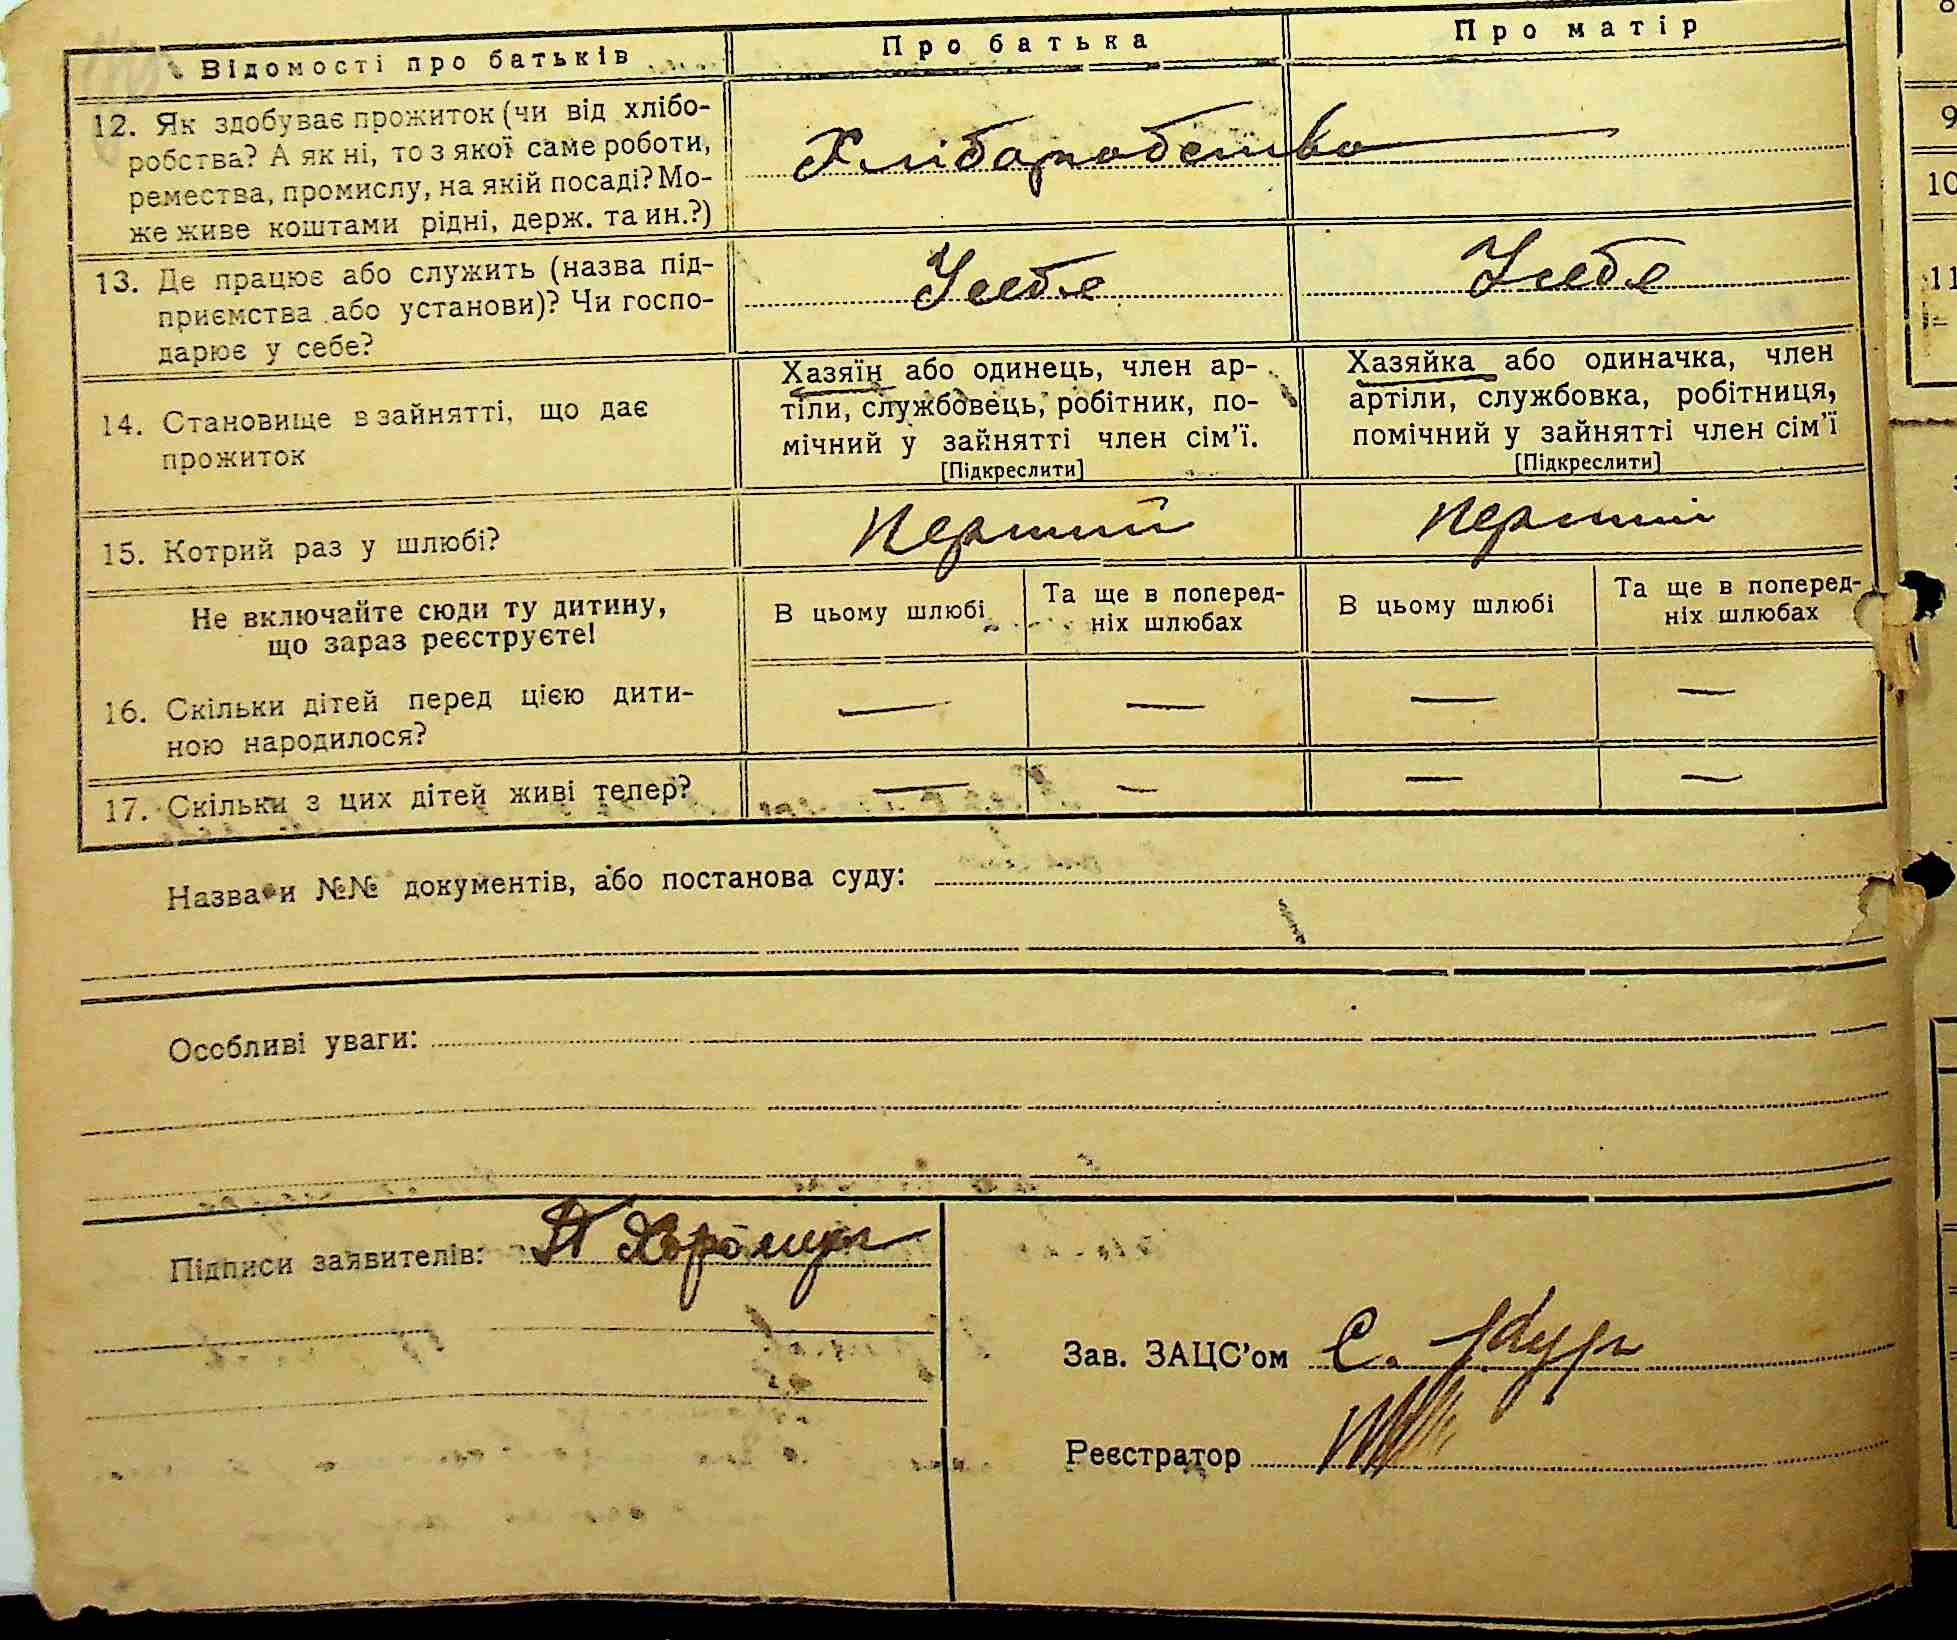 Відомості про батьків Про батька Про матір
12. Як здобуває прожиток (чи від хлібо-
робства? А як ні, то з якої саме роботи,
ремества, промислу, на якій посаді? Мо-
же живе коштами рідні, держ. та ин.?)
Хліборобство
13. Де працює або служить (назва під-
приємства або установи)? Чи госпо-
дарює у себе?
У себе У себе
14. Становище в зайнятті, що дає
прожиток
Хазяїн або одинець, член ар-
тіли, службовець, робітник, по-
мічний у зайнятті член сім'ї.
[Підкреслити]
Хазяйка або одиначка, член
артіли, службовка, робітниця,
помічний у зайнятті член сім'ї
[Підкреслити]
15. Котрий раз у шлюбі? Перший Перший
Не включайте сюди ту дитину,
що зараз реєструєте!
В цьому шлюбі
Та ще в поперед-
ніх шлюбах
В цьому шлюбі
Та ще в поперед-
ніх шлюбах
16. Скільки дітей перед цією дити-
ною народилося?
— — — —
17. Скільки з цих дітей живі тепер? — — — —
Назва и №№ документів, або постанова суду:
Особливі уваги:
Підписи заявителів:
Зав. ЗАЦС'ом С.
Реєстратор
9
10
11